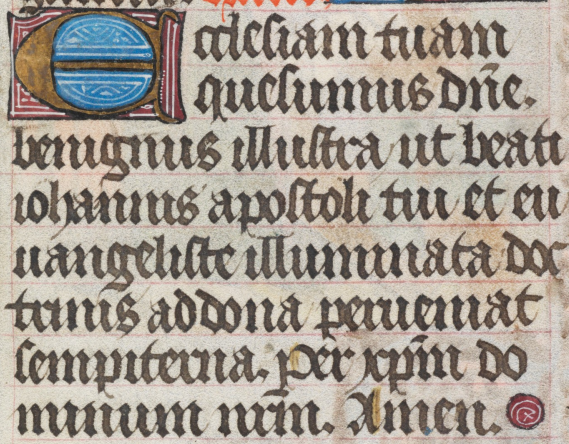 Ecclesiam tuam
quesumus dñe.
benignus illustra ut beati
iohannis apostoli tui et eu
uangeliste illuminata doc
trinis ad dona perueniat
sempiterna. per xp̃m do
minum nr̃m. Amen.